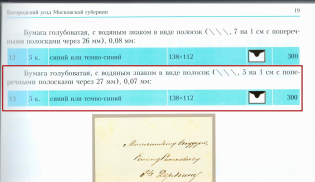 Богородский уезд Московской губернии 19
Бумага голубоватая, с водяным знаком в виде полосок (\\\, 7 на 1 см с попереч-
ными полосками через 26 мм), 0,08 мм:
12 5 к. синий или темно-синий 138×112 300
Бумага голубоватая, с водяным знаком в виде полосок (\\\, 5 на 1 см с попе-
речными полосками через 27 мм), 0,07 мм:
13 5 к. синий или темно-синий 138×112 300